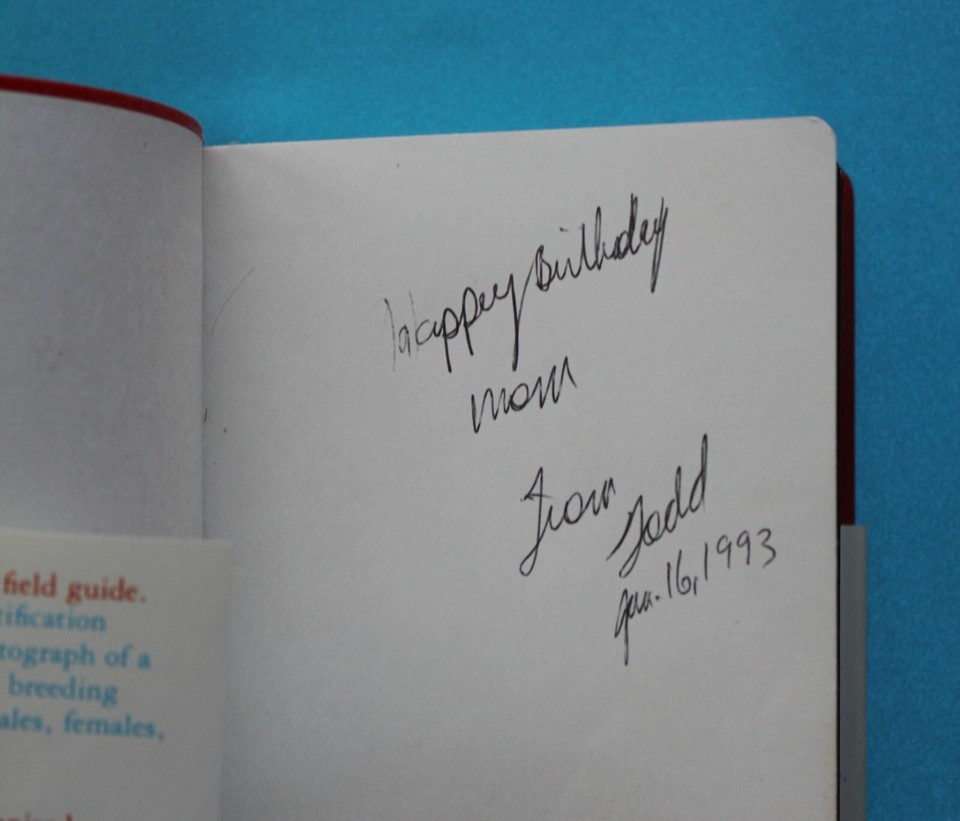 Happy Birthday
Mom
From Todd
Jan. 16, 1993
field guide.
tification
tograph of a
breeding
ales, females,